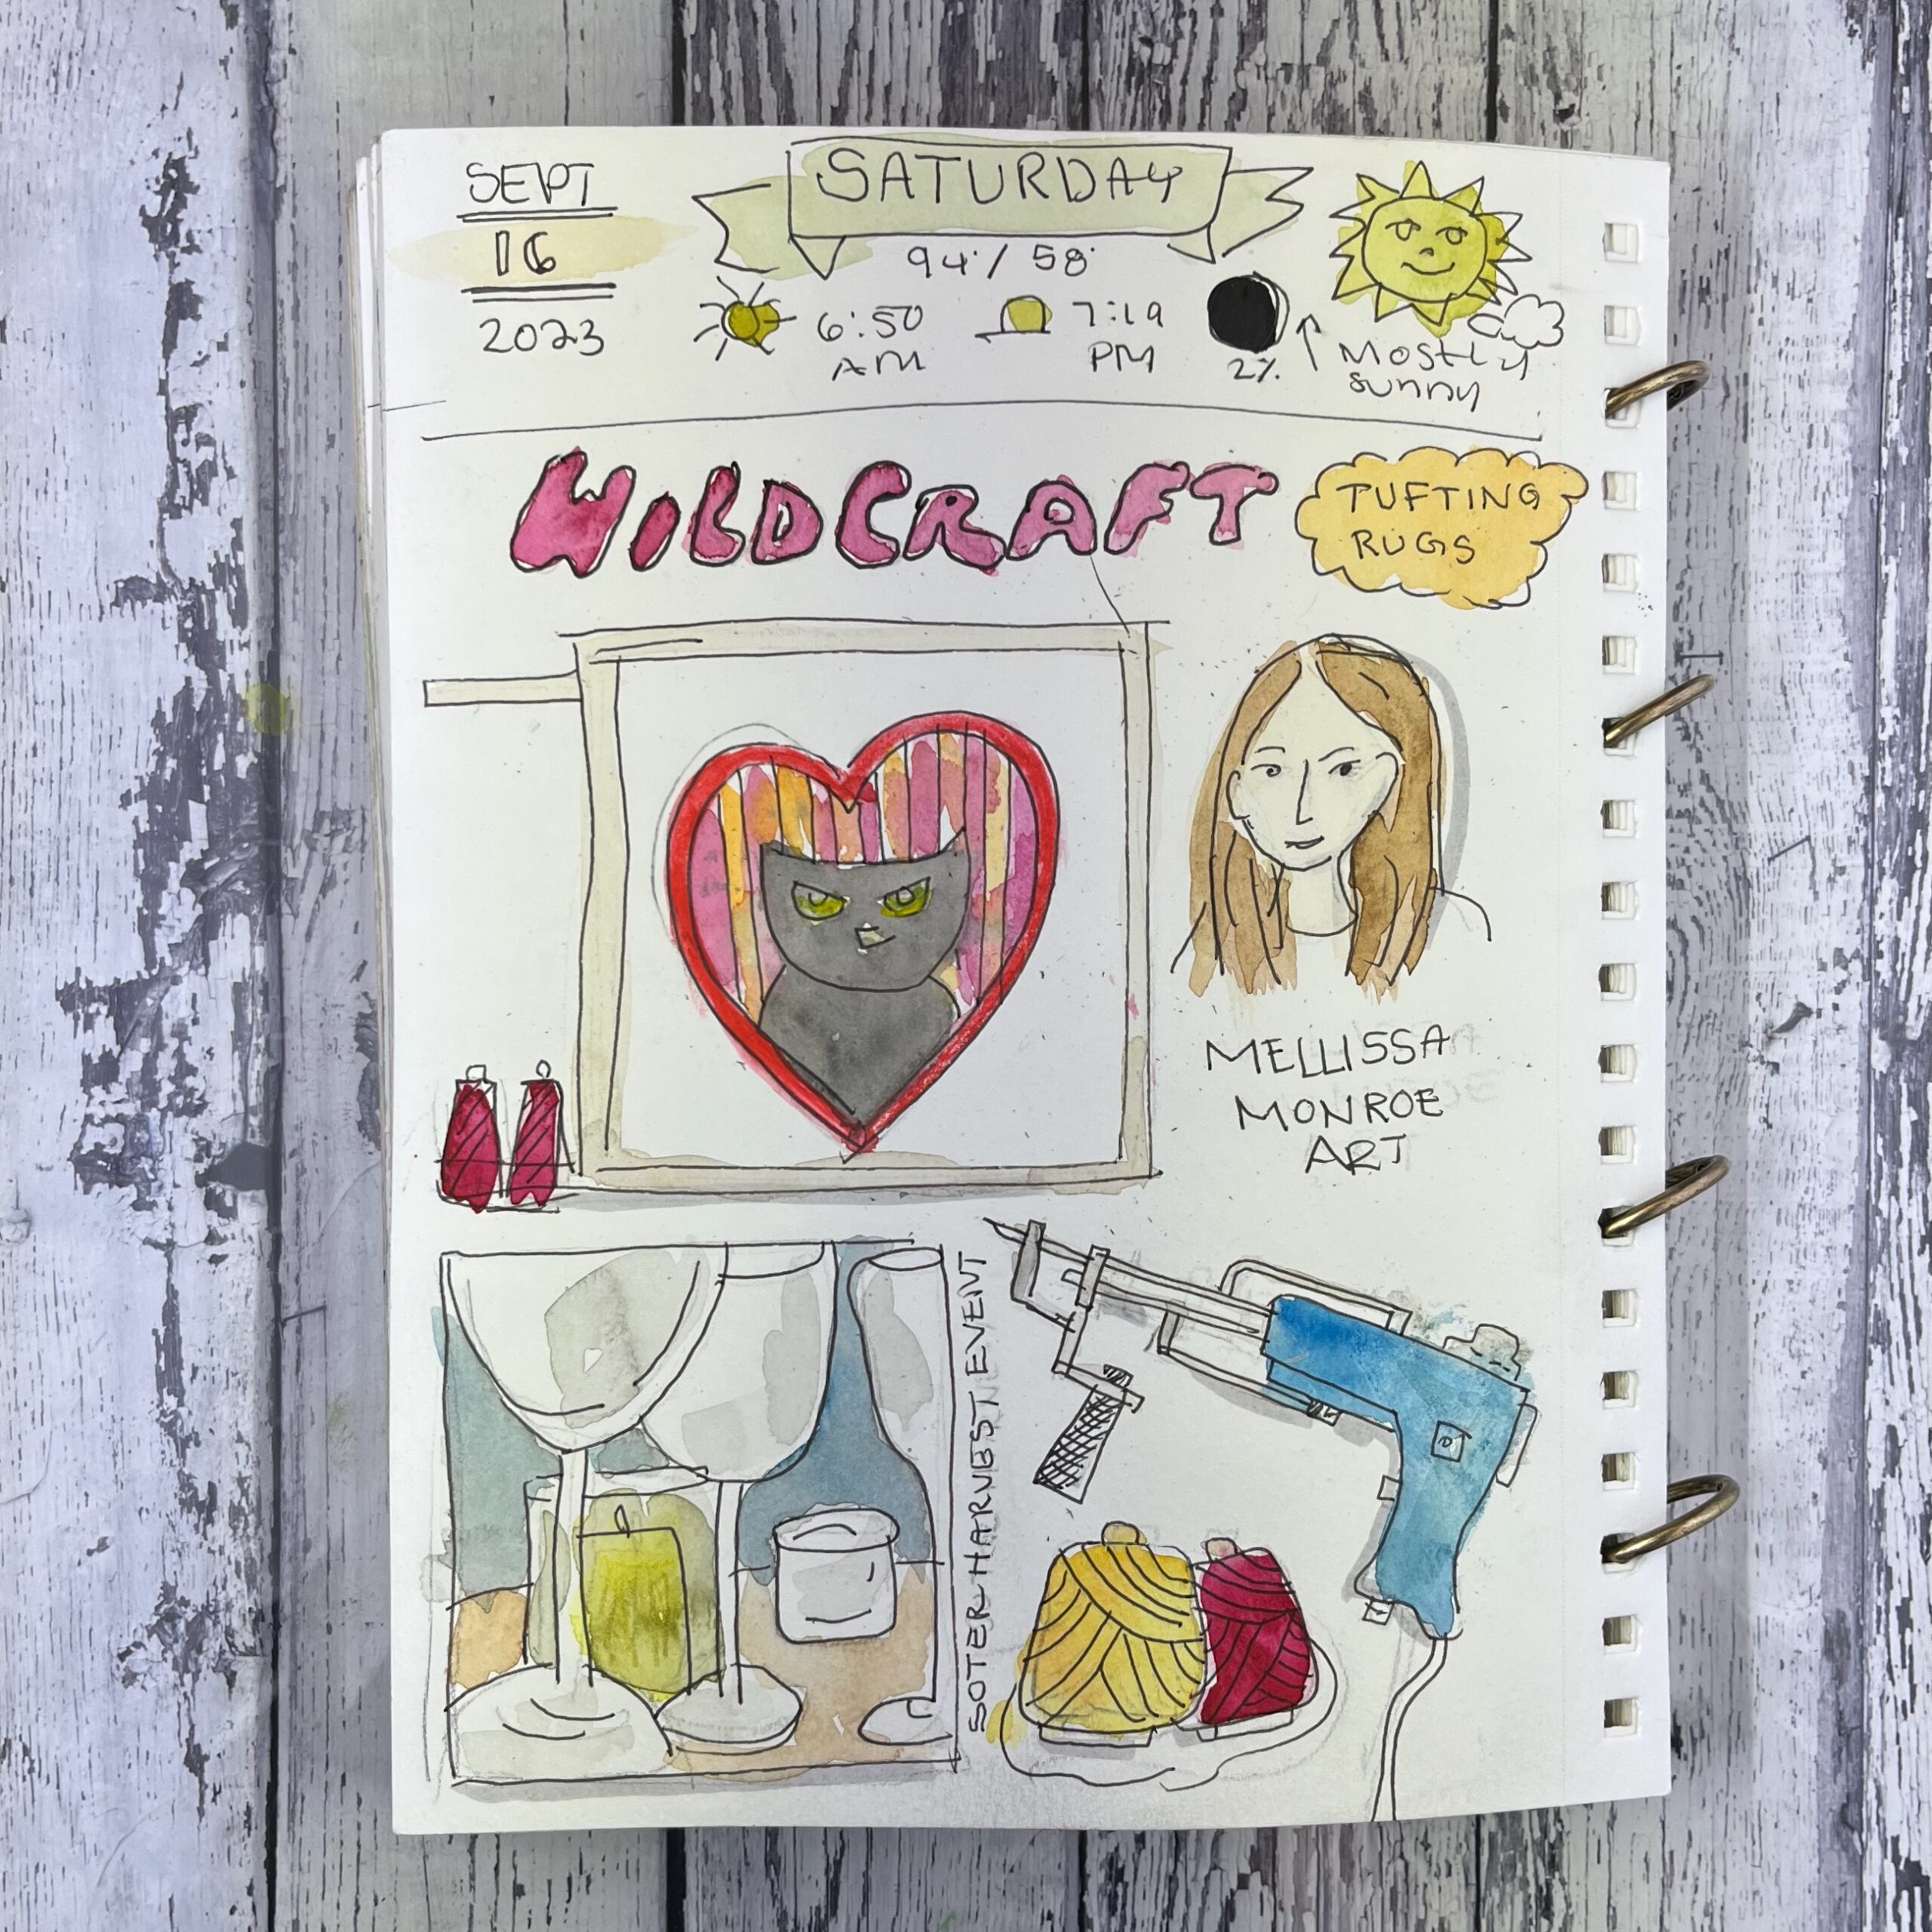 SEPT
16
2023
SATURDAY
94°/ 58°
6:50
AM
7:19
PM
2%
Mostly
sunny
WILDCRAFT
TUFTING
RUGS
MELLISSA
MONROE
ART
SOTER HARVEST EVENT